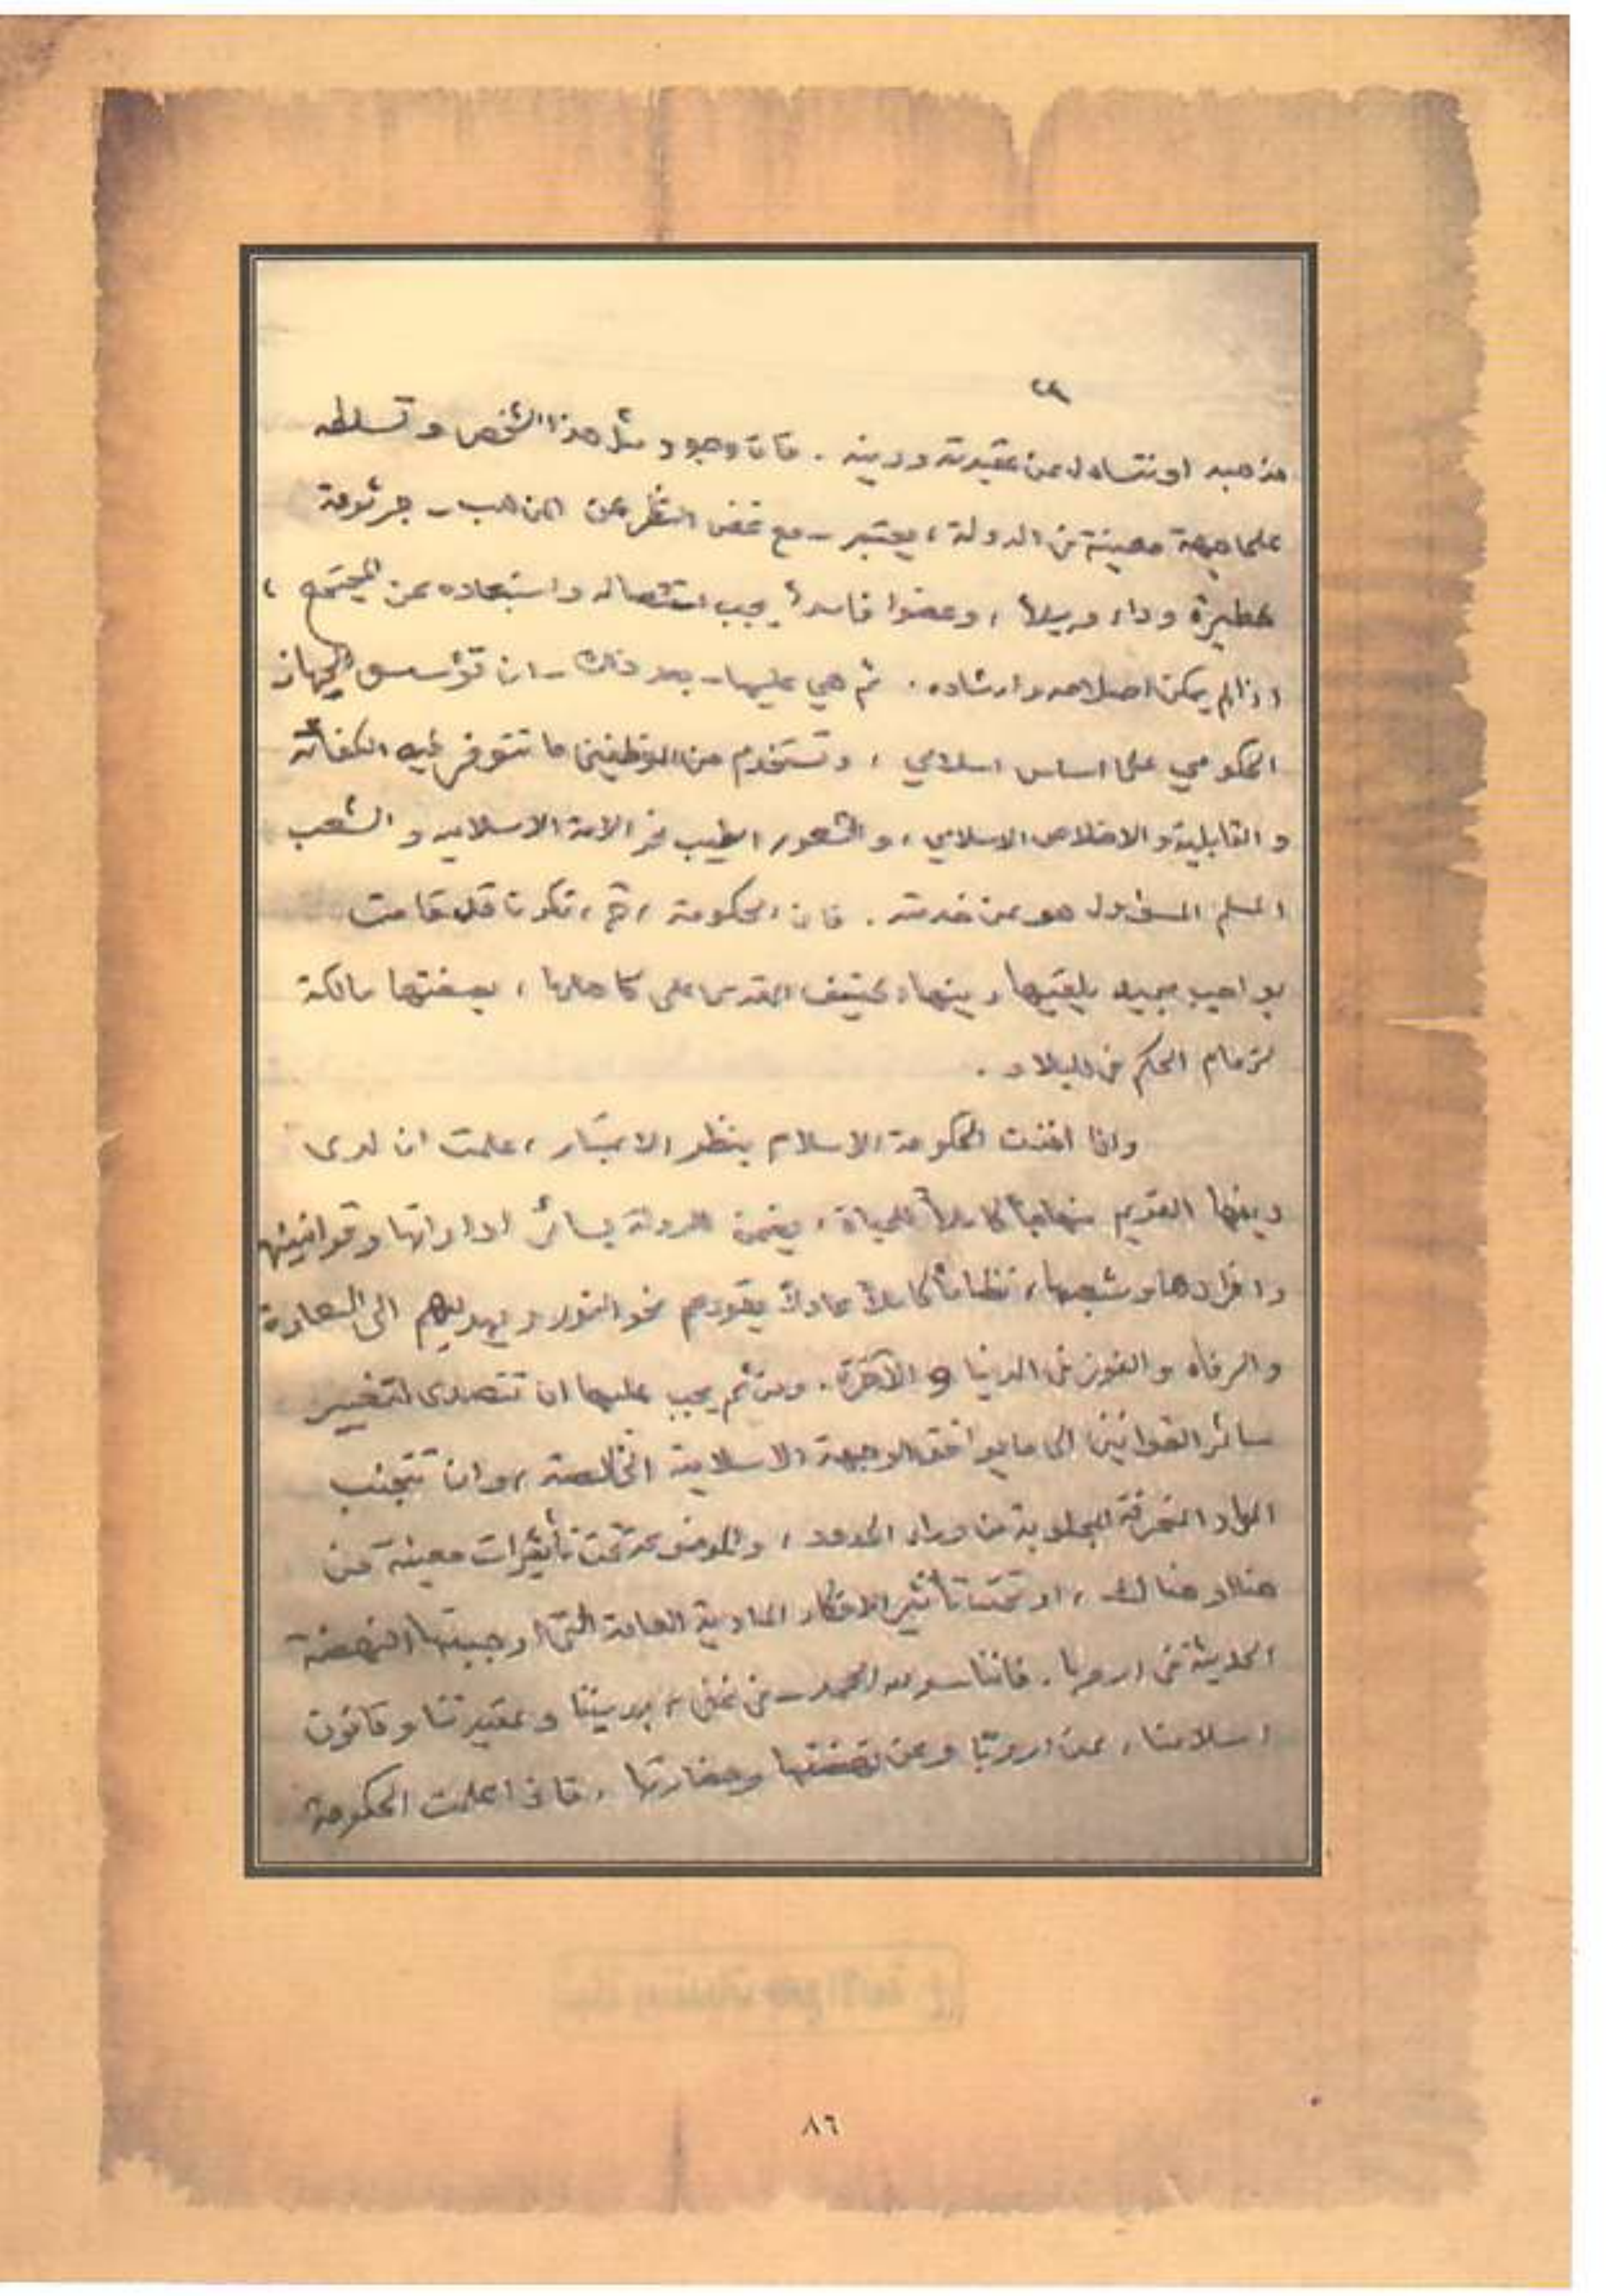 ٢٣
مذهبه او نتساءل عن عقيدته ودينه . فان وجود مثل هذا الشخص وتسلطه
على جهة معينة من الدولة ، يعتبر - مع غض النظر عن المذهب - جرثومة
خطيرة وداء وبيلاً ، وعضوا فاسداً يجب استئصاله واستبعاده عن المجتمع ،
اذا لم يمكن اصلاحه وارشاده . ثم هي عليها - بعد ذلك - ان تؤسس الجهاز
الحكومي على اساس اسلامي ، وتستخدم من الموظفين ما تتوفر فيه الكفائة
والقابلية والاخلاص الاسلامي ، والشعور الطيب نحو الامة الاسلاميه والشعب
المسلم المسؤول هو عن خدمته . فان الحكومة تكون قد قامت
بواجب يلقيها دينها الحنيف المقدس على كاهلها ، بصفتها مالكة
لزمام الحكم في البلاد .
واذا اخذت الحكومة الاسلام بنظر الاعتبار ، علمت ان لدى
دينها القويم منهاجاً كاملاً للحياة ، يضمن للدولة بسائر اداراتها وقوانينها
وافرادها وشعبها ، نظاماً كاملاً عادلاً يقودهم نحو النور ويهديهم الى السعادة
والرفاه والفوز في الدنيا و الآخرة . ومن ثم يجب عليها ان تتصدى لتغيير
سائر القوانين الى ما يوافق الوجهة الاسلامية الخالصة ، وان تتجنب
المواد المنحرفة المجلوبة من وراء الحدود ، والموضوعة تحت تأثيرات معينة من
هنا او هنالك ، او تحت تأثير الافكار المادية العامة التي اوجبتها النهضة
الحديثة في اروبا . فاننا - ولله الحمد - في غنى ، بديننا وعقيدتنا وقانون
اسلامنا ، عن اروبا وعن نهضتها وحضارتها . فاذا علمت الحكومة
٨٦